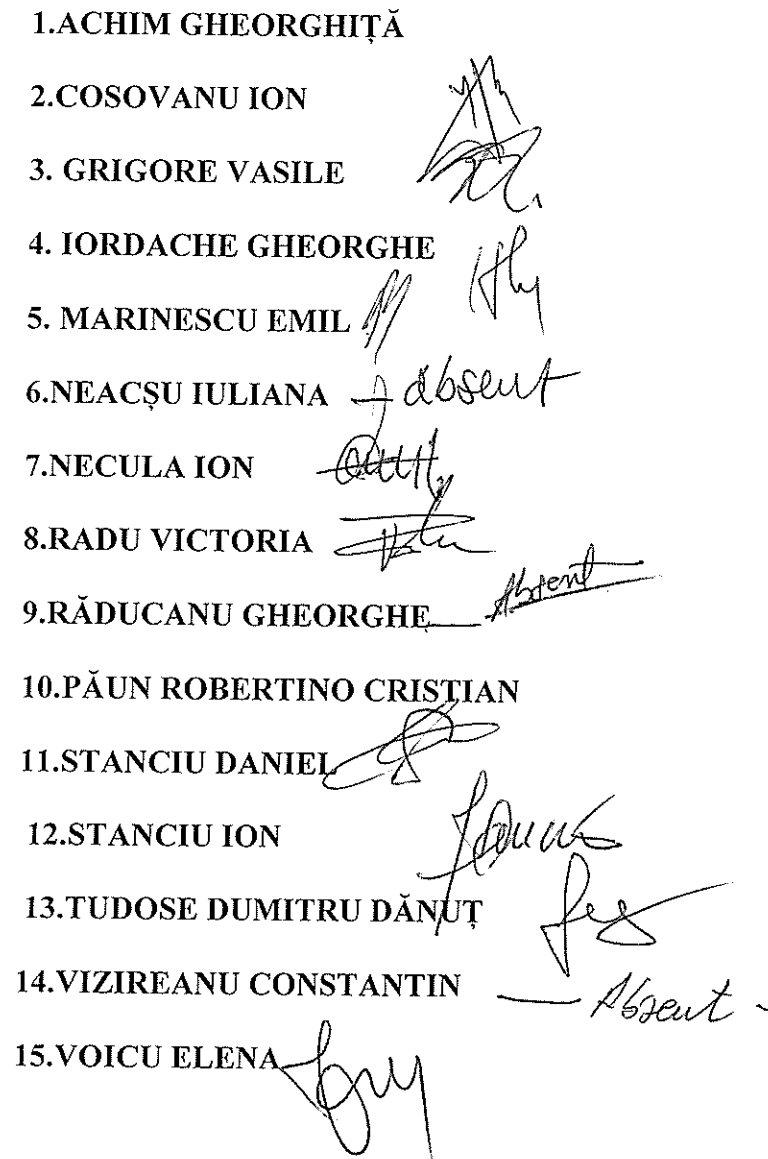 1.ACHIM GHEORGHIȚĂ
2.COSOVANU ION
3. GRIGORE VASILE
4. IORDACHE GHEORGHE
5. MARINESCU EMIL
6.NEACȘU IULIANA absent
7.NECULA ION
8.RADU VICTORIA
9.RĂDUCANU GHEORGHE Absent
10.PĂUN ROBERTINO CRISTIAN
11.STANCIU DANIEL
12.STANCIU ION
13.TUDOSE DUMITRU DĂNUȚ
14.VIZIREANU CONSTANTIN — Absent -
15.VOICU ELENA